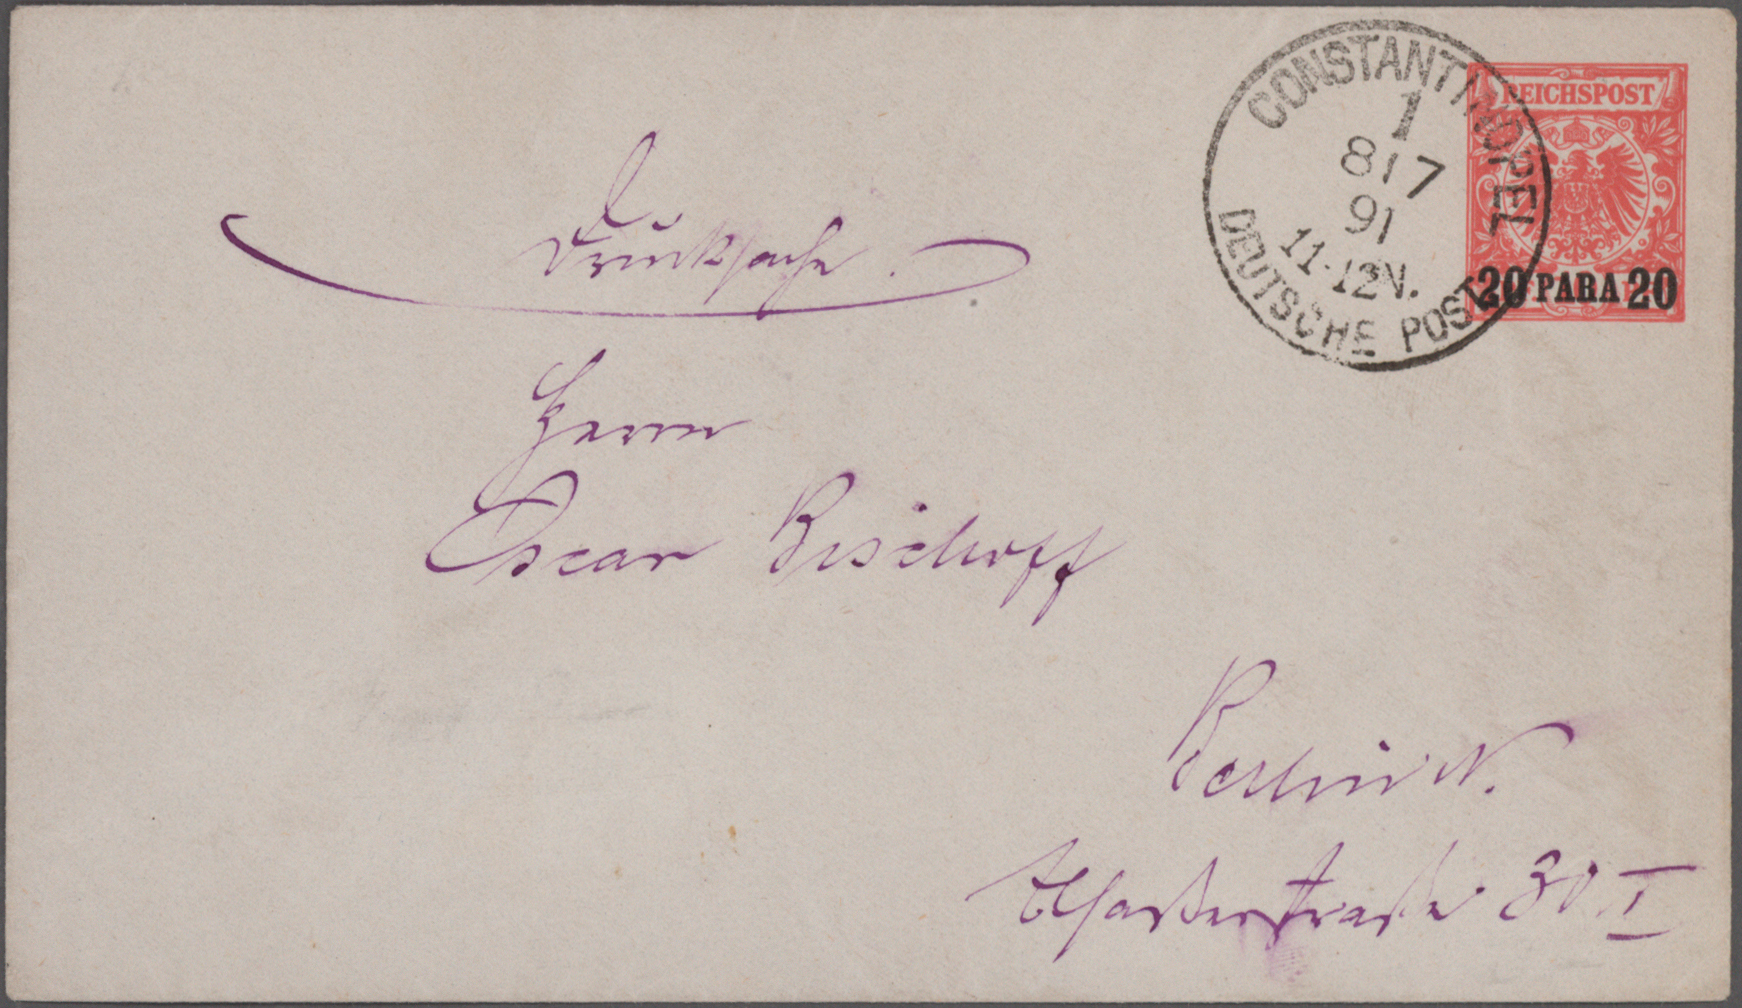 CONSTANTINOPEL
1
8 / 7
91
11-12N.
DEUTSCHE POST
REICHSPOST
20 PARA 20
Drucksache.
Herrn
Oscar Bischoff
Berlin N.
Elsasserstrasse 30 I